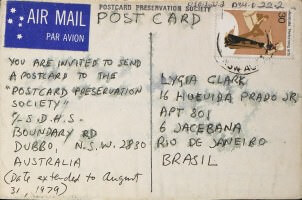 POSTCARD PRESERVATION SOCIETY
AIR MAIL
PAR AVION
POST CARD
30
YOU ARE INVITED TO SEND
A POSTCARD TO THE
"POSTCARD PRESERVATION
SOCIETY"
7-S.D.H.S.
BOUNDARY RD
DUBBO, N.S.W. 2830
AUSTRALIA
(Date extended to August
31, 1979)
LYGIA CLARK
16 HOEUIDA PRADO JR
APT 801
6 JACEBANA
RIO DE JANEIRO
BRASIL